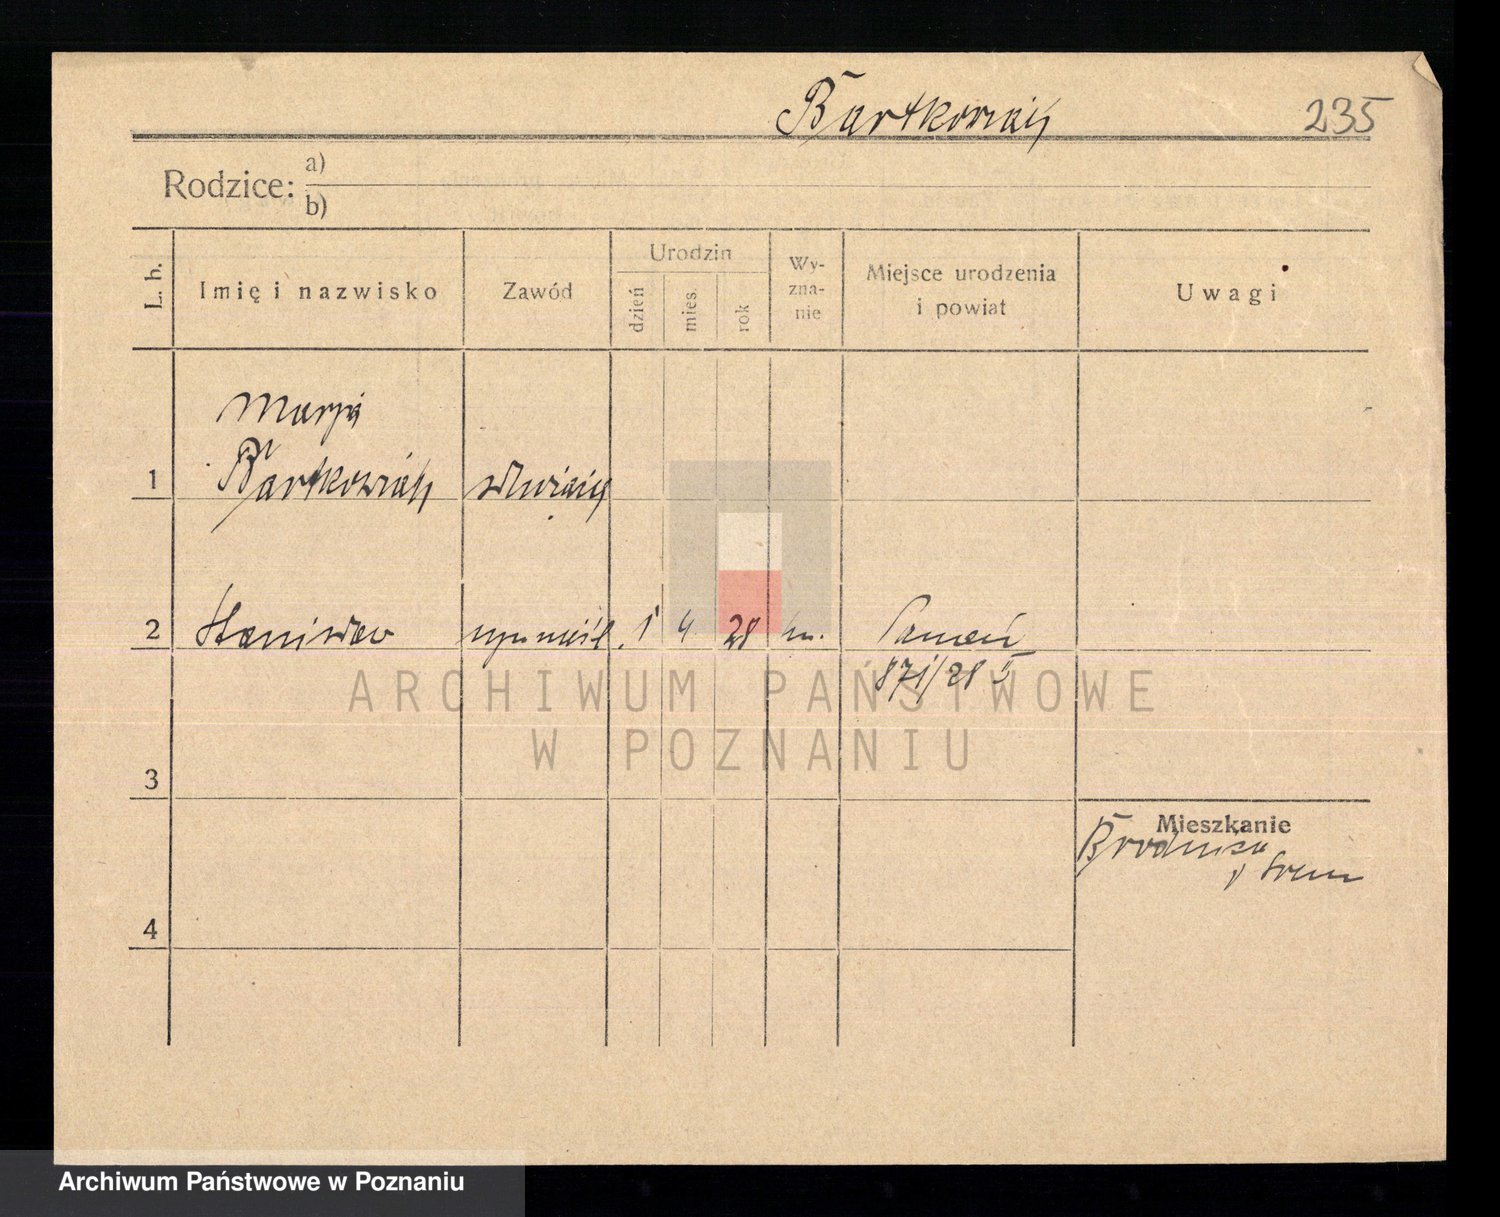 Bartkowiak 235
Rodzice: a)
b)
L. b.
Imię i nazwisko
Zawód
Urodzin
dzień
mies.
rok
Wy-
zna-
nie
Miejsce urodzenia
i powiat
Uwagi
Marja
1 Bartkowiak
2 Stanisław 1 4 28 Poznań
871/28 II
ARCHIWUM PAŃSTWOWE
W POZNANIU
3
Mieszkanie
Brodnica
p Śrem
4
Archiwum Państwowe w Poznaniu